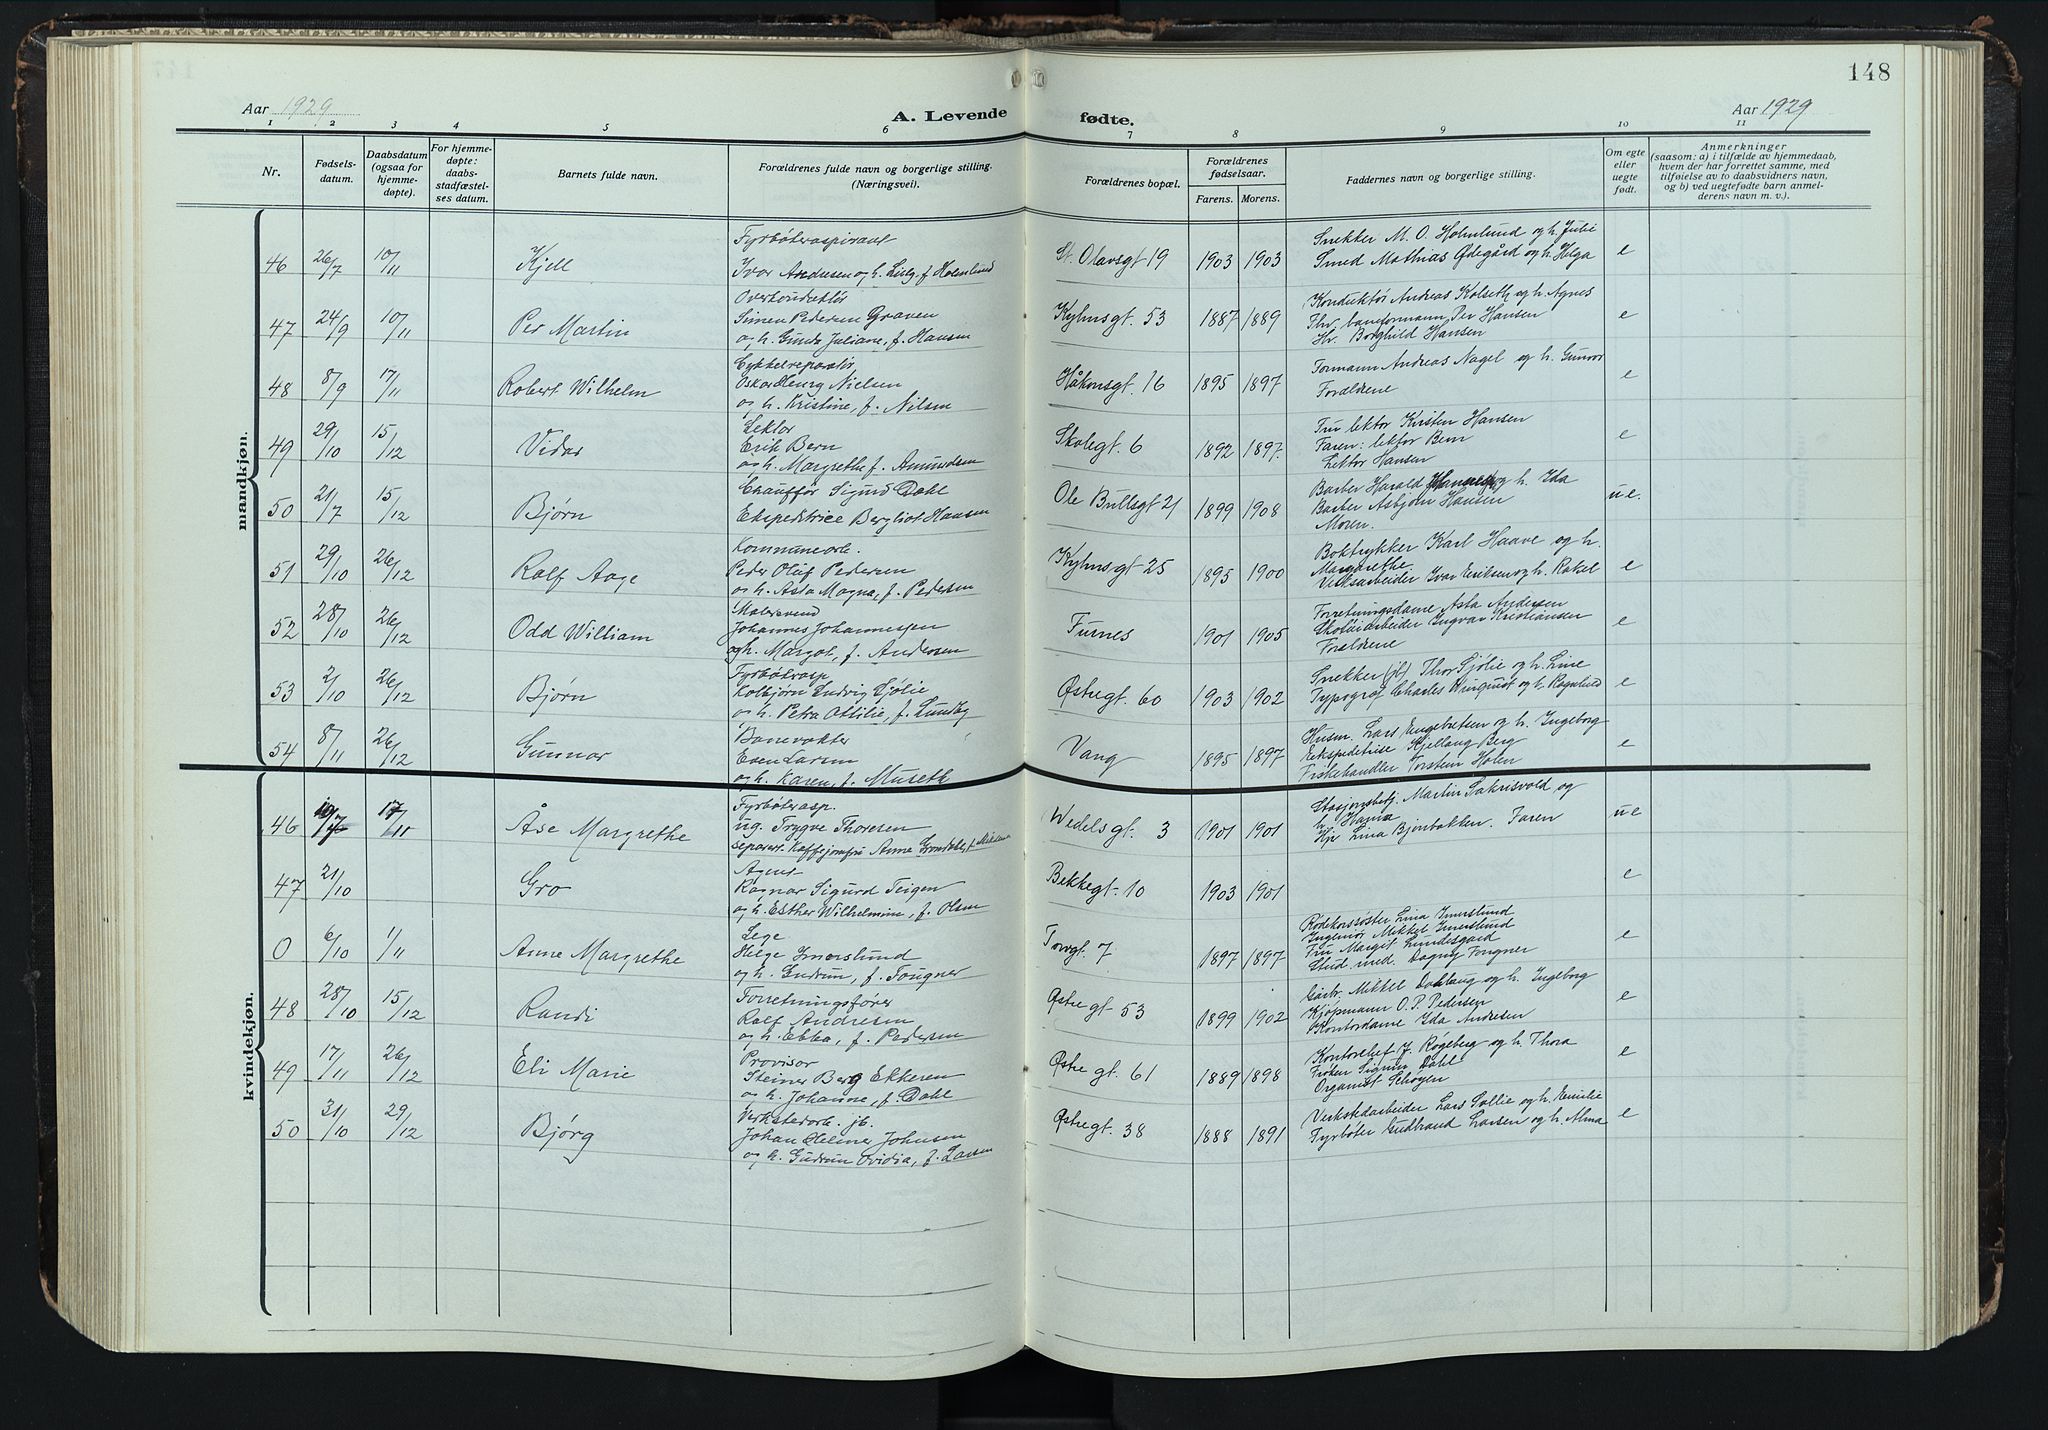 148
Aar 1929
A. Levende fødte.
Aar 1929
1 2 3 4 5 6 7 8 9 10 11
Nr.
Fødsels-
datum.
Daabsdatum
(ogsaa for
hjemme-
døpte).
For hjemme-
døpte:
daabs-
stadfæstel-
ses datum.
Barnets fulde navn.
Forældrenes fulde navn og borgerlige stilling.
(Næringsvei).
Forældrenes bopæl.
Forældrenes
fødselsaar.
Farens. Morens.
Faddernes navn og borgerlige stilling.
Om egte
eller
uegte
født.
Anmerkninger
(saasom: a) i tilfælde av hjemmedaab,
hvem der har forrettet samme, med
tilføielse av to daabsvidners navn,
og b) ved uegtefødte barn anmel-
derens navn m. v.).
mandkjøn.
Fyrbøteraspirant Snekker M. O. Holmlund og h. Julie
46 26/7 10/11 Kjell Ivar Andresen og h. Lislg. f. Holmlund St. Olavsgt 19 1903 1903 Smed Mathias Ødegård og h. Helga e
Overkonduktør Konduktør Andreas Kolseth og h. Agnes
47 24/9 10/11 Per Martin Simen Pedersen Graven Kyhnsgt. 53 1887 1889 Thv. baneformann Per Hansen e
og h. Gunda Juliane, f. Hansen Hr. Borghild Hansen
Cykkelreparatør Formann Andreas Nagel og h. Gunvor
48 8/9 17/11 Robert Wilhelm Oskar Henry Nielsen Håkonsgt. 16 1895 1897 Forældrene e
og h. Kristine, f. Nilsen
Lektor Fru lektor Kirsten Hansen
49 29/10 15/12 Vidar Erik Bern Skolegt. 6 1892 1897. Faren: lektor Bern e
og h. Margrethe f. Amundsen Lektor Hansen
Chauffør Sigurd Dahl Barber Harald Hansen og h. Ida
50 21/7 15/12 Bjørn Ekspeditrice Bergliot Hansen Ole Bullsgt 21 1899 1908 Barber Asbjørn Hansen u e.
Moren.
Kommunearb. Boktrykker Karl Haave og h.
51 29/10 26/12 Rolf Aage Peder Oluf Pedersen Kyhnsgt 25 1895 1900 Margrethe e
og h. Asta Magna, f. Pedersen Verksarbeider Ivar Eriksen og h. Rakel
Malersvend Forretningsdame Asta Andersen
52 28/10 26/12 Odd William Johannes Johannessen Furnes 1901 1905 Skotøiarbeider Ingvar Kristiansen e
og h. Margot, f. Andersen Forældrene
Fyrbøterasp Snekker (jb) Thor Sjølie og h. Line
53 2/10 26/12 Bjørn Kolbjørn Ludvig Sjølie Østregt. 60 1903 1902 Typograf Charles Winquist og h. Ragnhild e
og h. Petra Ottilie, f. Lundby
Banevokter Husm. Lars Engebretsen og h. Ingeborg
54 8/11 26/12 Gunnar Even Larsen Vang 1895 1897 Ekspeditrise Kjellaug Berg e
og h. Karen, f. Museth Fiskehandler Torstein Holen
kvindekjøn.
Fyrbøterasp. Stasjonsbetj. Martin Sakrisvold og
46 19/7 17/11 Åse Margrethe ug. Trygve Thoresen Wedelsgt. 3 1901 1901 h. Hanna u e
separert. Kaffejomfru Anna Hjr Lina Bjørbakken. Faren
Agent
47 21/10 Gro Ragnar Sigurd Teigen Bekkegt. 10 1903 1901 e
og h. Esther Wilhelmine, f. Olsen
Lege Rødekorssøster Lina Imerslund
0 6/10 1/11 Anne Margrethe Helge Imerslund Torvgt. 7 1897 1897 Ingeniør Mikkel Imerslund e
og h. Gudrun, f. Fougner Fru Margit Lundesgård
Stud. med. Dagny Fougner
Forretningsfører Garbr. Mikkel Dæhlaug og h. Ingeborg
48 28/10 15/12 Randi Ralf Andresen Østregt 53 1899 1902 Kjøpmann O. P. Pedersen e
og h. Ebba, f. Pedersen Kontordame Ida Andresen
Provisor Kontorchef J. Røgeberg og h. Thora
49 17/11 26/12 Eli Marie Steinar Berg Ekkeren Østregt. 61 1889 1898 Frøken Signe Dahl e
og h. Johanne, f. Dahl Organist Schøyen
Verkstedarb. jb. Verkstedarbeider Lars Sollie og h. Emilie
50 31/10 29/12 Bjørg Johan Helmer Johnsen Østregt. 38 1888 1891 Fyrbøter Gudbrand Larsen og h. Alma e
og h. Gudrun Ovidia, f. Larsen